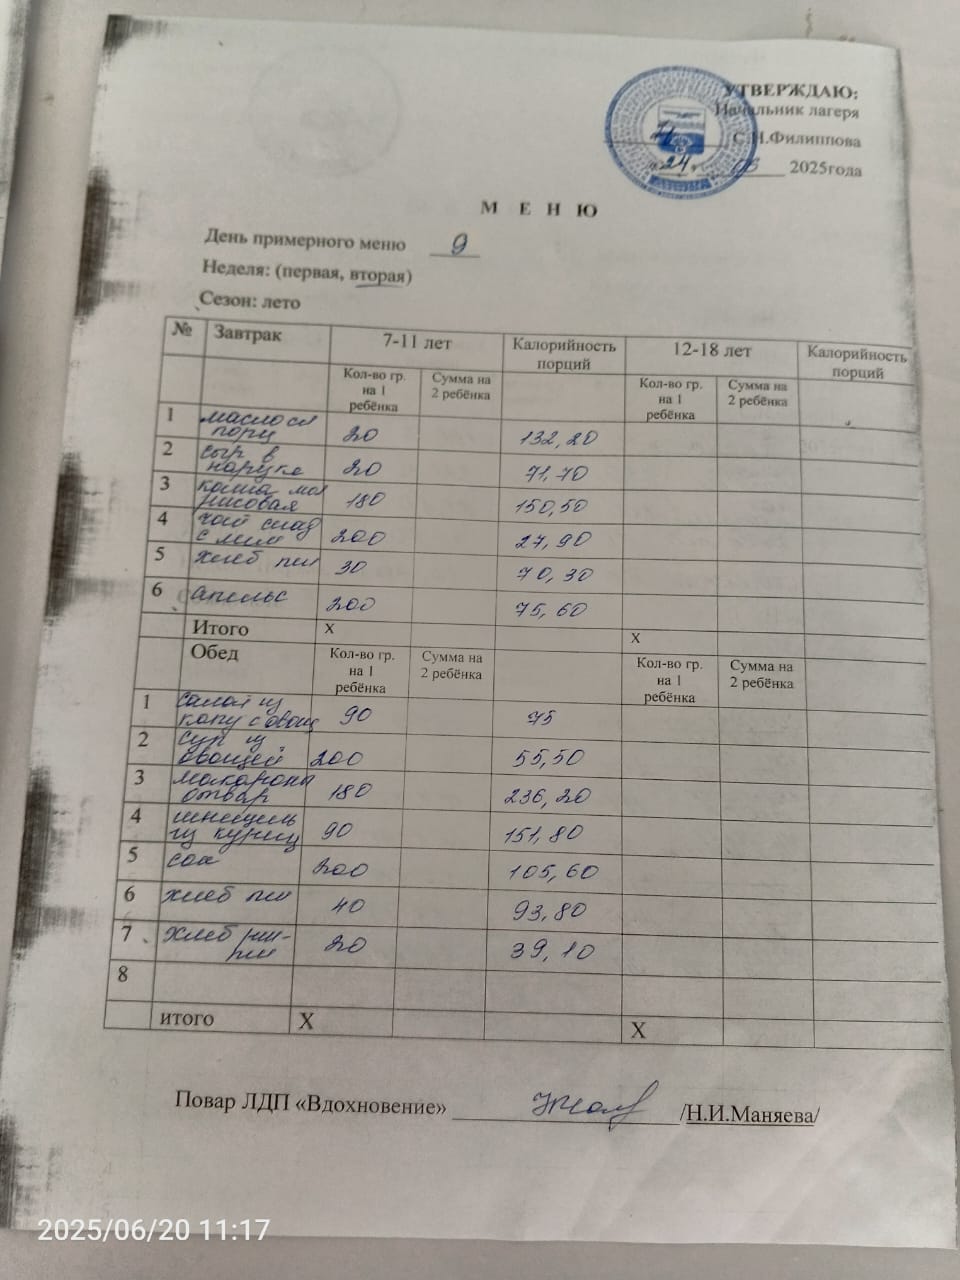 УТВЕРЖДАЮ:
Начальник лагеря
С.Н.Филиппова
24 2025года
М Е Н Ю
День примерного меню 9
Неделя: (первая, вторая)
Сезон: лето
№ Завтрак 7-11 лет Калорийность порций 12-18 лет Калорийность порций
Кол-во гр. на 1 ребёнка Сумма на 2 ребёнка Кол-во гр. на 1 ребёнка Сумма на 2 ребёнка
1 масло сл порц 20 132,20
2 сыр в нарезке 20 71,70
3 каша мол рисовая 180 150,50
4 чай слад с лим 200 27,90
5 хлеб пш 30 70,30
6 апельс 200 75,60
Итого Х Х
Обед Кол-во гр. на 1 ребёнка Сумма на 2 ребёнка Кол-во гр. на 1 ребёнка Сумма на 2 ребёнка
1 салат из капу с овощ 90 75
2 суп из овощей 200 55,50
3 макароны отвар 180 236,20
4 шницель из куриц 90 151,80
5 сок 200 105,60
6 хлеб пш 40 93,80
7 хлеб 20 39,10
8
итого Х Х
Повар ЛДП «Вдохновение» /Н.И.Маняева/
2025/06/20 11:17